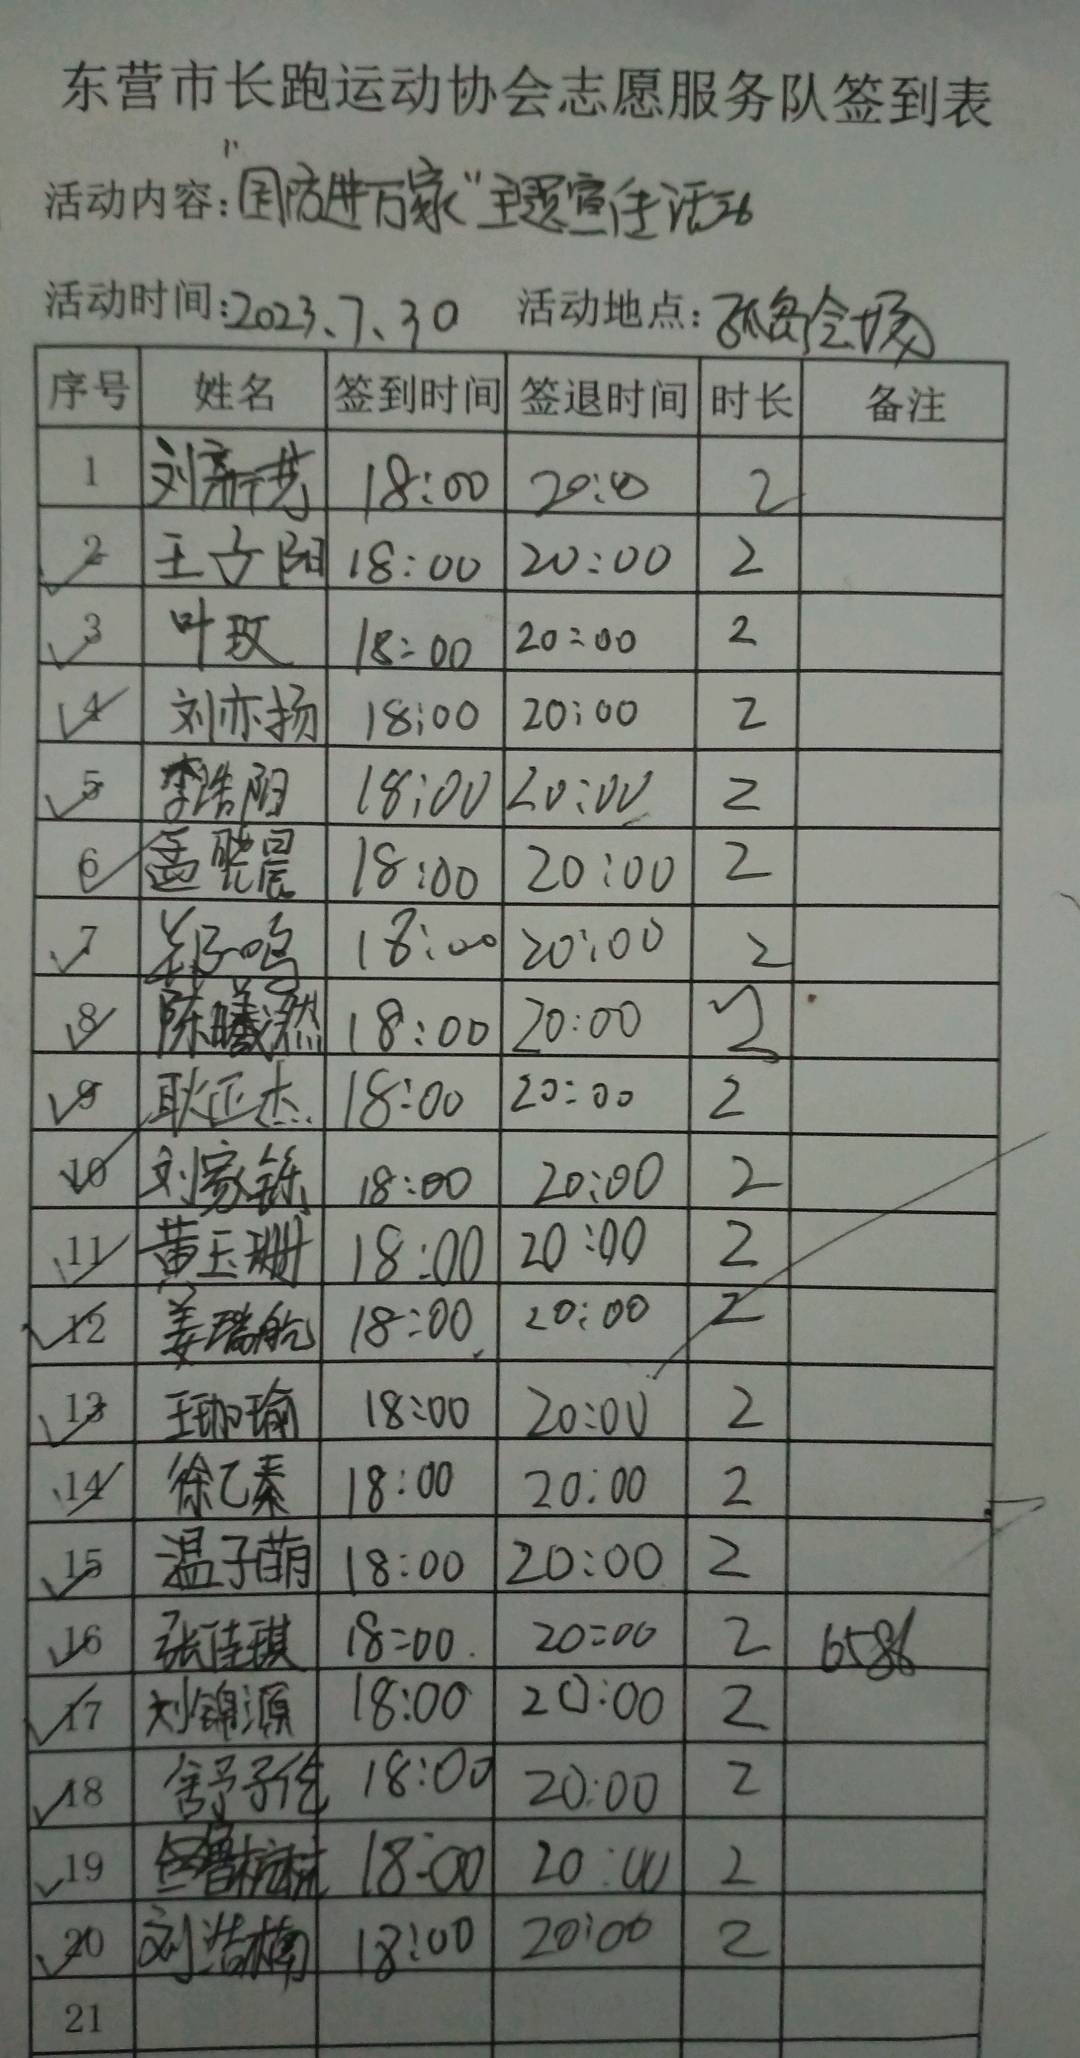 东营市长跑运动协会志愿服务队签到表
活动内容："国防进万家"主题宣传活动
活动时间：2023、7、30 活动地点：孤岛会场
序号 姓名 签到时间 签退时间 时长 备注
1 刘 18:00 20:00 2
2 王子阳 18:00 20:00 2
3 叶玫 18:00 20:00 2
4 刘亦扬 18:00 20:00 2
5 李浩阳 18:00 20:00 2
6 孟晓晨 18:00 20:00 2
7 18:00 20:00 2
8 陈曦然 18:00 20:00 2
9 耿正杰 18:00 20:00 2
10 刘家铄 18:00 20:00 2
11 黄玉珊 18:00 20:00 2
12 姜瑞航 18:00 20:00 2
13 王珈瑜 18:00 20:00 2
14 徐乙素 18:00 20:00 2
15 温子萌 18:00 20:00 2
16 张佳琪 18:00 20:00 2 6586
17 刘锦源 18:00 20:00 2
18 舒子 18:00 20:00 2
19 18:00 20:00 2
20 刘浩楠 18:00 20:00 2
21